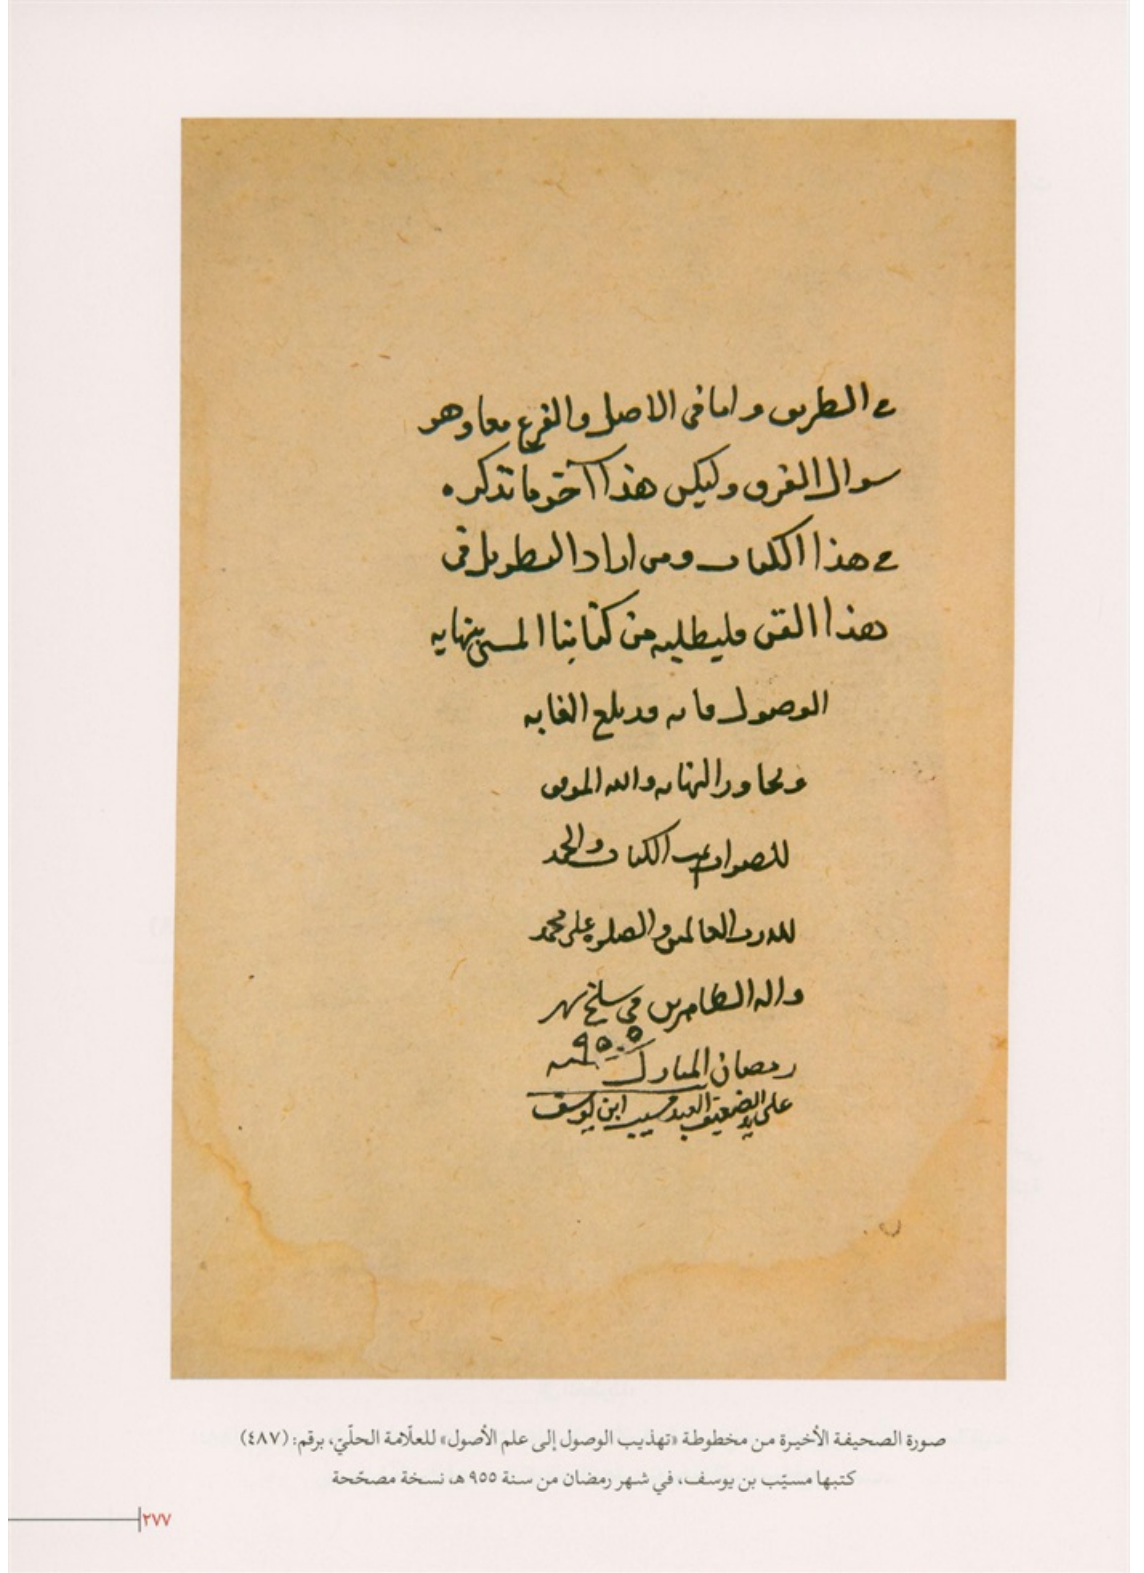 في الطريق واما في الاصل والفرع معا وهو
سوال الفرق وليكن هذا آخر ما نذكره
في هذا الكتاب ومن اراد التطويل في
هذا الفن فليطلبه من كتابنا المسمى بنهايه
الوصول فانه قد بلغ الغايه
وتجاوز النهايه والله الموفق
للصواب تمت الكتاب والحمد
لله رب العالمين والصلوه على محمد
واله الطاهرين في سلخ شهر
رمضان المبارك سنه ٩٥٥
على يد الضعيف العبد مسيب ابن يوسف
صورة الصحيفة الأخيرة من مخطوطة «تهذيب الوصول إلى علم الأصول» للعلّامة الحلّيّ، برقم: (٤٨٧)
كتبها مسيّب بن يوسف، في شهر رمضان من سنة ٩٥٥ هـ، نسخة مصحّحة
٢٧٧